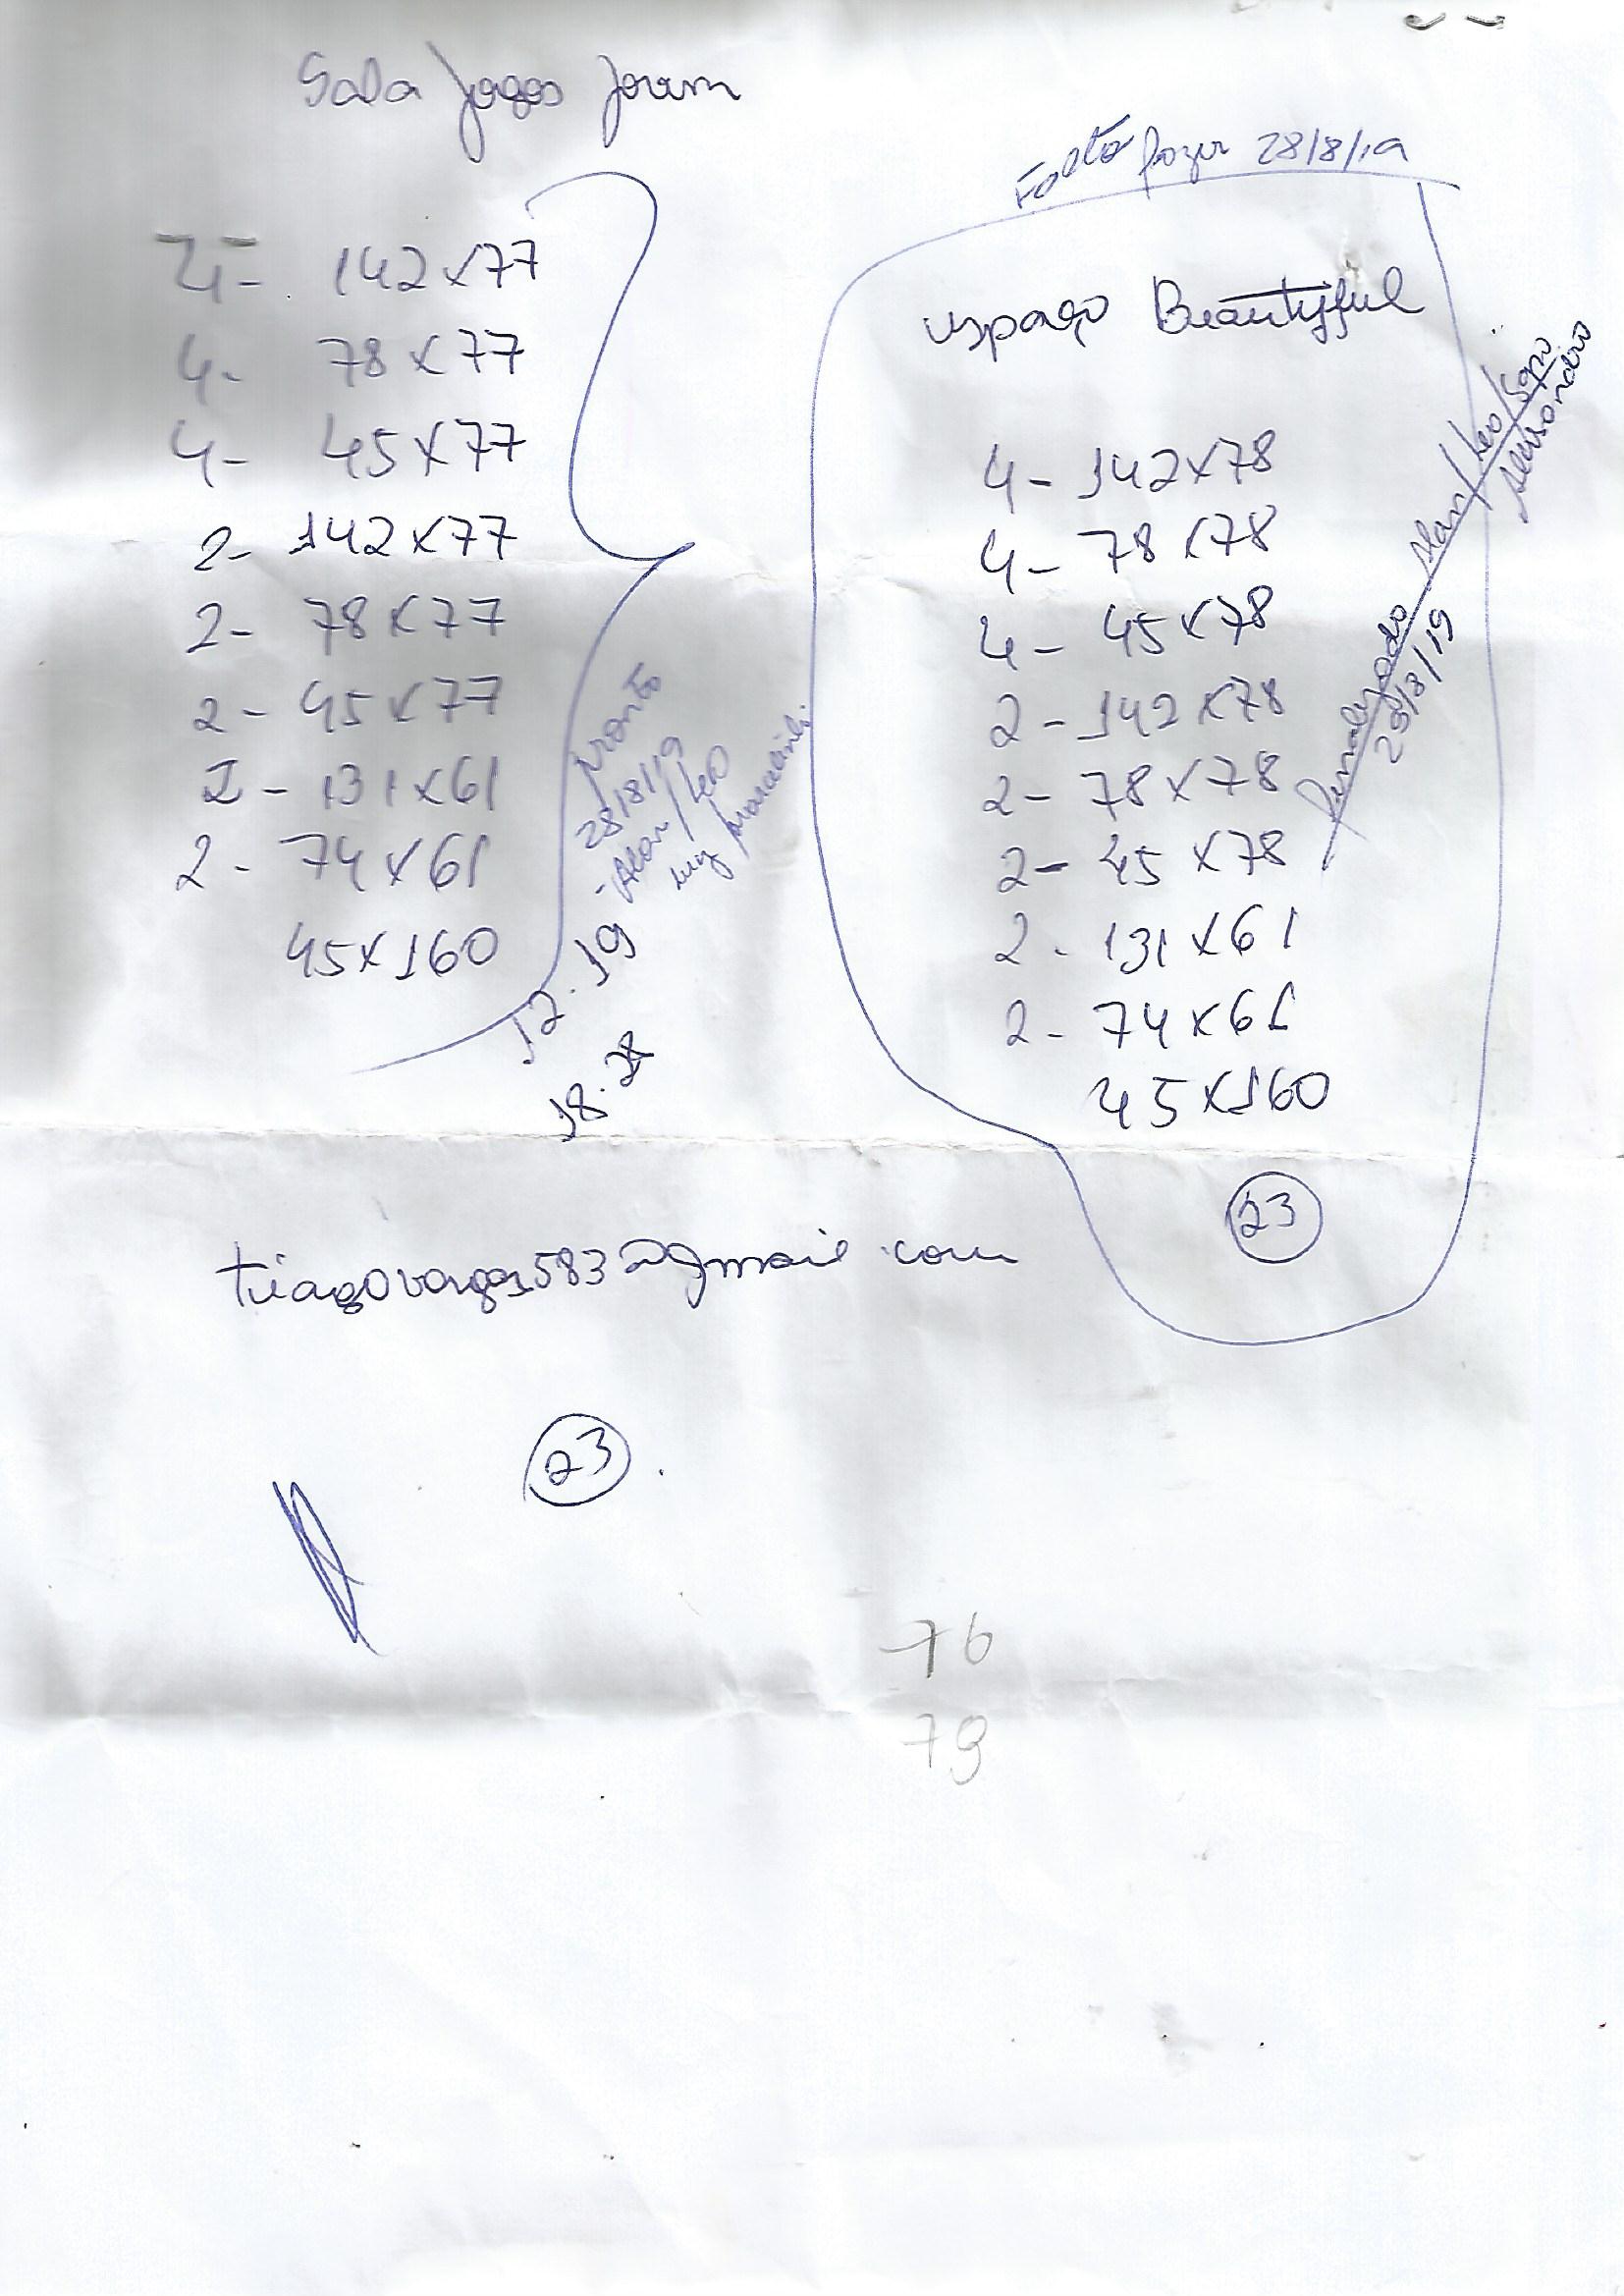 Sala Jogos Jovem
4- 142x77
4- 78x77
4- 45x77
2- 142x77
2- 78x77
2- 45x77
2- 131x61
2- 74x61
45x160
Pronto
28/8/19
Alan/Leo
Luiz
12.19
18.28
Falta fazer 28/8/19
espaço Beautyful
4- 142x78
4- 78x78
4- 45x78
2- 142x78
2- 78x78
2- 45x78
2- 131x61
2- 74x61
45x160
23
Finalizado Alan/Leo/
Alessandro
29/8/19
tiagovargas583@gmail.com
23
76
79